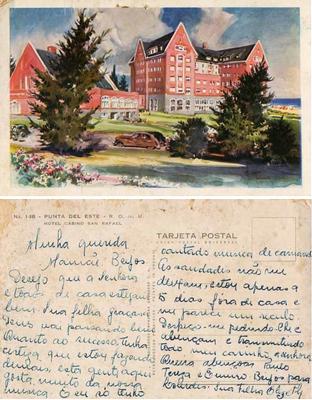 No. 148 - PUNTA DEL ESTE - R. O. del U.
HOTEL CASINO SAN RAFAEL
TARJETA POSTAL
UNION POSTAL UNIVERSAL
Minha querida
Mamãe Beijos
Desejo que a senhora
e todos de casa estejam
bem. Sua filha graças a
Deus vai passando bem
Quanto ao sucesso, tenha
certeza que estou fazendo
demais, esta gente aqui
gosta muito da nossa
musica. E eu só tenho
cantado musica de
As saudades não me
deixam, estou apenas a
15 dias fora de casa e
me parece um seculo.
Despeço-me pedindo-lhe a
abençoar e transmitindo
todo meu carinho a senhora
Queira abençoar Paulo
e Beijos para
Sua filha